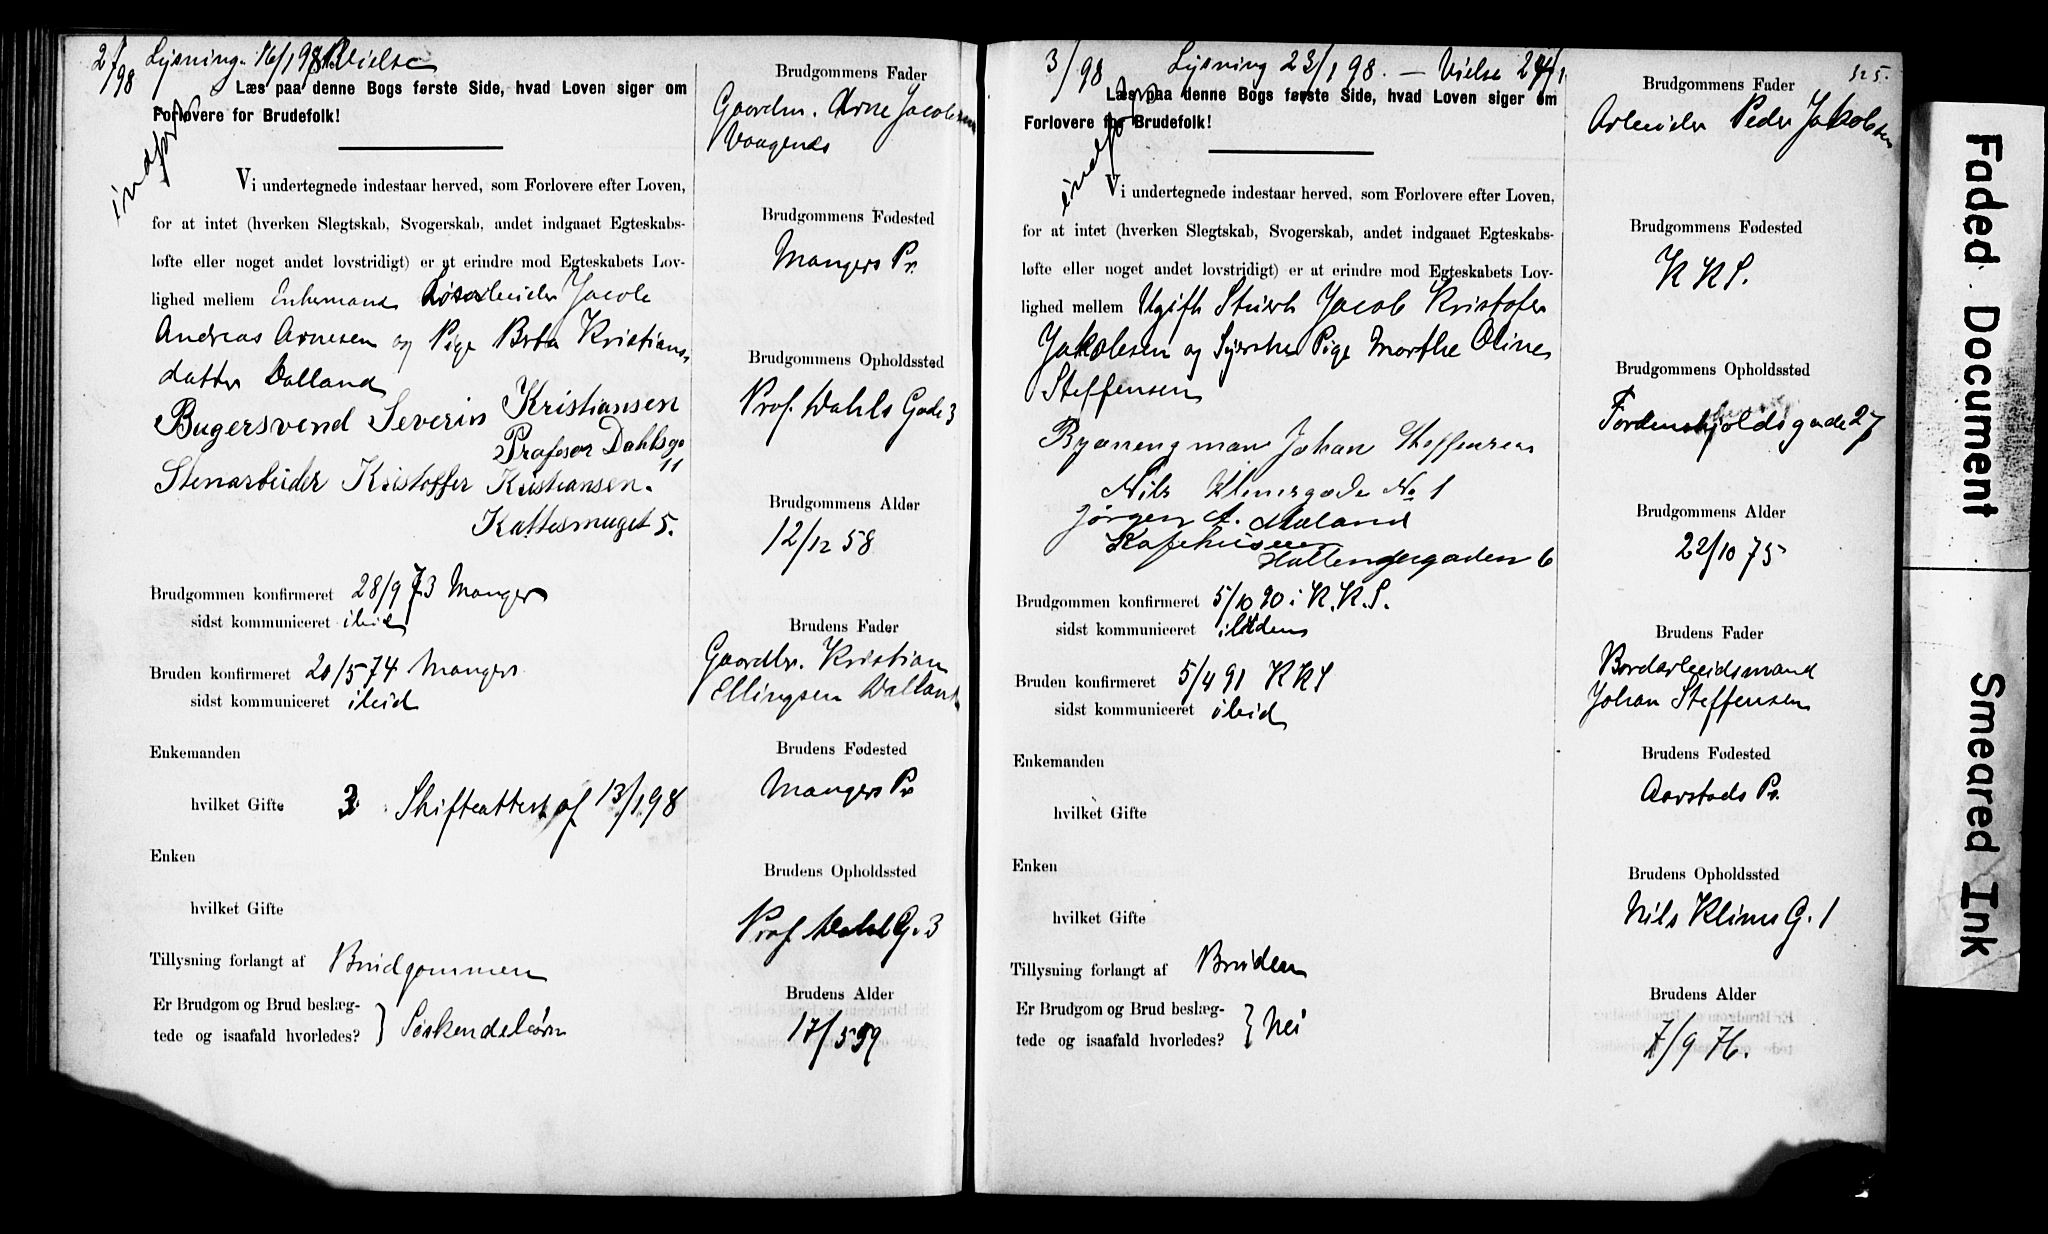 2/98 Lysning 16/1 98 Vielse
indført
Læs paa denne Bogs første Side, hvad Loven siger om
Forlovere for Brudefolk!
Vi undertegnede indestaar herved, som Forlovere efter Loven,
for at intet (hverken Slegtskab, Svogerskab, andet indgaaet Egteskabs-
løfte eller noget andet lovstridigt) er at erindre mod Egteskabets Lov-
lighed mellem Enkemand Løsarbeider Jacob
Andreas Arnesen og Pige Brta Kristians
datter Dalland
Bugersvend Severin Kristiansen
Profesor Dahlsga
11
Stenarbeider Kristoffer Kristiansen.
Kattesmuget 5.
Brudgommen konfirmeret 28/9 73 Manger
sidst kommuniceret ibid
Bruden konfirmeret 20/5 74 Mangers
sidst kommuniceret ibid
Enkemanden
hvilket Gifte 3. Skifteattest af 13/1 98
Enken
hvilket Gifte
Tillysning forlangt af Brudgommen
Er Brudgom og Brud beslæg-
tede og isaafald hvorledes? } Söskendebörn
Brudgommens Fader
Gaardbr. Arne Jacobsen
Vaagenes
Brudgommens Fødested
Mangers Pr.
Brudgommens Opholdssted
Prof. Dahls Gade 3
Brudgommens Alder
12/12 58
Brudens Fader
Gaardbr. Kristian
Ellingsen Dalland
Brudens Fødested
Mangers Pr
Brudens Opholdssted
Prof. Dahl G. 3
Brudens Alder
17/5 59
3/98 Lysning 23/1 98. — Vielse 24/1
325.
indført
Læs paa denne Bogs første Side, hvad Loven siger om
Forlovere for Brudefolk!
Vi undertegnede indestaar herved, som Forlovere efter Loven,
for at intet (hverken Slegtskab, Svogerskab, andet indgaaet Egteskabs-
løfte eller noget andet lovstridigt) er at erindre mod Egteskabets Lov-
lighed mellem Ugift Stuert Jacob Kristofer
Jakobsen og Syerske Pige Marthe Oline
Steffensen
Johan Steffensen
Nils Klimsgade No 1
Jørgen A. Mæland
Hollendergaden 6
Brudgommen konfirmeret 5/10 90 i K.K.S.
sidst kommuniceret ibidem
Bruden konfirmeret 5/4 91 KKS
sidst kommuniceret ibid
Enkemanden
hvilket Gifte
Enken
hvilket Gifte
Tillysning forlangt af Bruden
Er Brudgom og Brud beslæg-
tede og isaafald hvorledes? } Nei
Brudgommens Fader
Arbeider Peder Jakobsen
Brudgommens Fødested
KKS.
Brudgommens Opholdssted
Tordenskjoldsgade 27
Brudgommens Alder
22/10 75
Brudens Fader
Bordarbeidsmand
Johan Steffensen
Brudens Fødested
Aarstads Pr.
Brudens Opholdssted
Nils Klims G. 1
Brudens Alder
7/9 76.
Faded Document
Smeared Ink